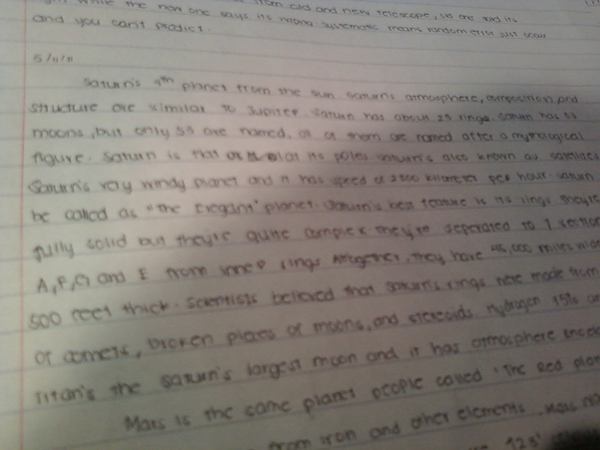 while the non one says its wrong systematic means random error just occur
and you can't predict.
5/11/11
Saturn's 4th planet from the sun. Saturn's atmosphere, composition, and
structure are similar to Jupiter. Saturn has about 25 rings. Saturn has 53
moons, but only 53 are named, of them are named after a mythological
figure. Saturn is that at its poles. Saturn's also known as satellites
Saturn's very windy planet and it has speed of kilometer per hour. Saturn
be called as "the Elegant" planet. Saturn's best feature is its rings they're
fully solid but they're quite complex they're seperated to 7 section
A, F, G and E from inner rings Altogether, they have miles wide
500 feet thick. Scientists believed that Saturn's rings were made from
of comets, broken pieces of moons, and steroids. Hydrogen 15%
Titan's the Saturn's largest moon and it has atmosphere
Mars is the same planet people called "The Red
from iron and other elements. Mars